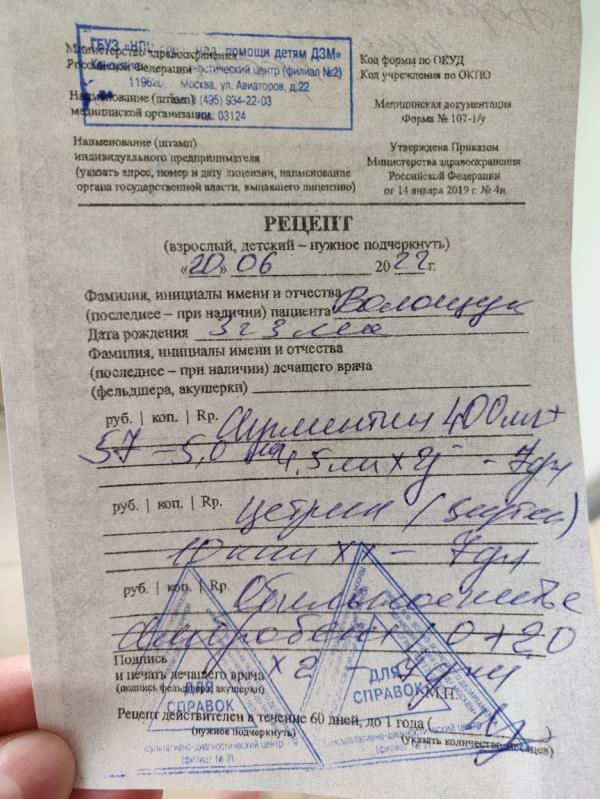 ГБУЗ «НПЦ спец. мед. помощи детям ДЗМ»
Министерство здравоохранения
Российской Федерации
диагностический центр (филиал №2)
Москва, ул. Авиаторов, д.22
Наименование (штамп)
(495) 934-22-03
медицинской организации
03124
Код формы по ОКУД
Код учреждения по ОКПО
Медицинская документация
Форма № 107-1/у
Наименование (штамп)
индивидуального предпринимателя
(указать адрес, номер и дату лицензии, наименование
органа государственной власти, выдавшего лицензию)
Утверждена Приказом
Министерства здравоохранения
Российской Федерации
от 14 января 2019 г. № 4н
РЕЦЕПТ
(взрослый, детский – нужное подчеркнуть)
«20» 06 2022 г.
Фамилия, инициалы имени и отчества
(последнее – при наличии) пациента Волощук
Дата рождения 3 г 3 мес
Фамилия, инициалы имени и отчества
(последнее – при наличии) лечащего врача
(фельдшера, акушерки)
руб. | коп. | Rp. Аугментин 400мг+
57 – 5,0 4,5мл х 2 – 7дн
руб. | коп. | Rp. Цетрин (
10 кап х – 7дн
руб. | коп. | Rp. Обильное питье
Амбробене +2,0
Подпись
и печать лечащего врача х 2 – 7 дней
(подпись фельдшера, акушерки)
М.П.
ДЛЯ СПРАВОК
ДЛЯ СПРАВОК
Рецепт действителен в течение 60 дней, до 1 года (
(нужное подчеркнуть)
(указать количество месяцев)
консультативно-диагностический центр
(филиал № 2)
консультативно-диагностический центр
(филиал № 2)